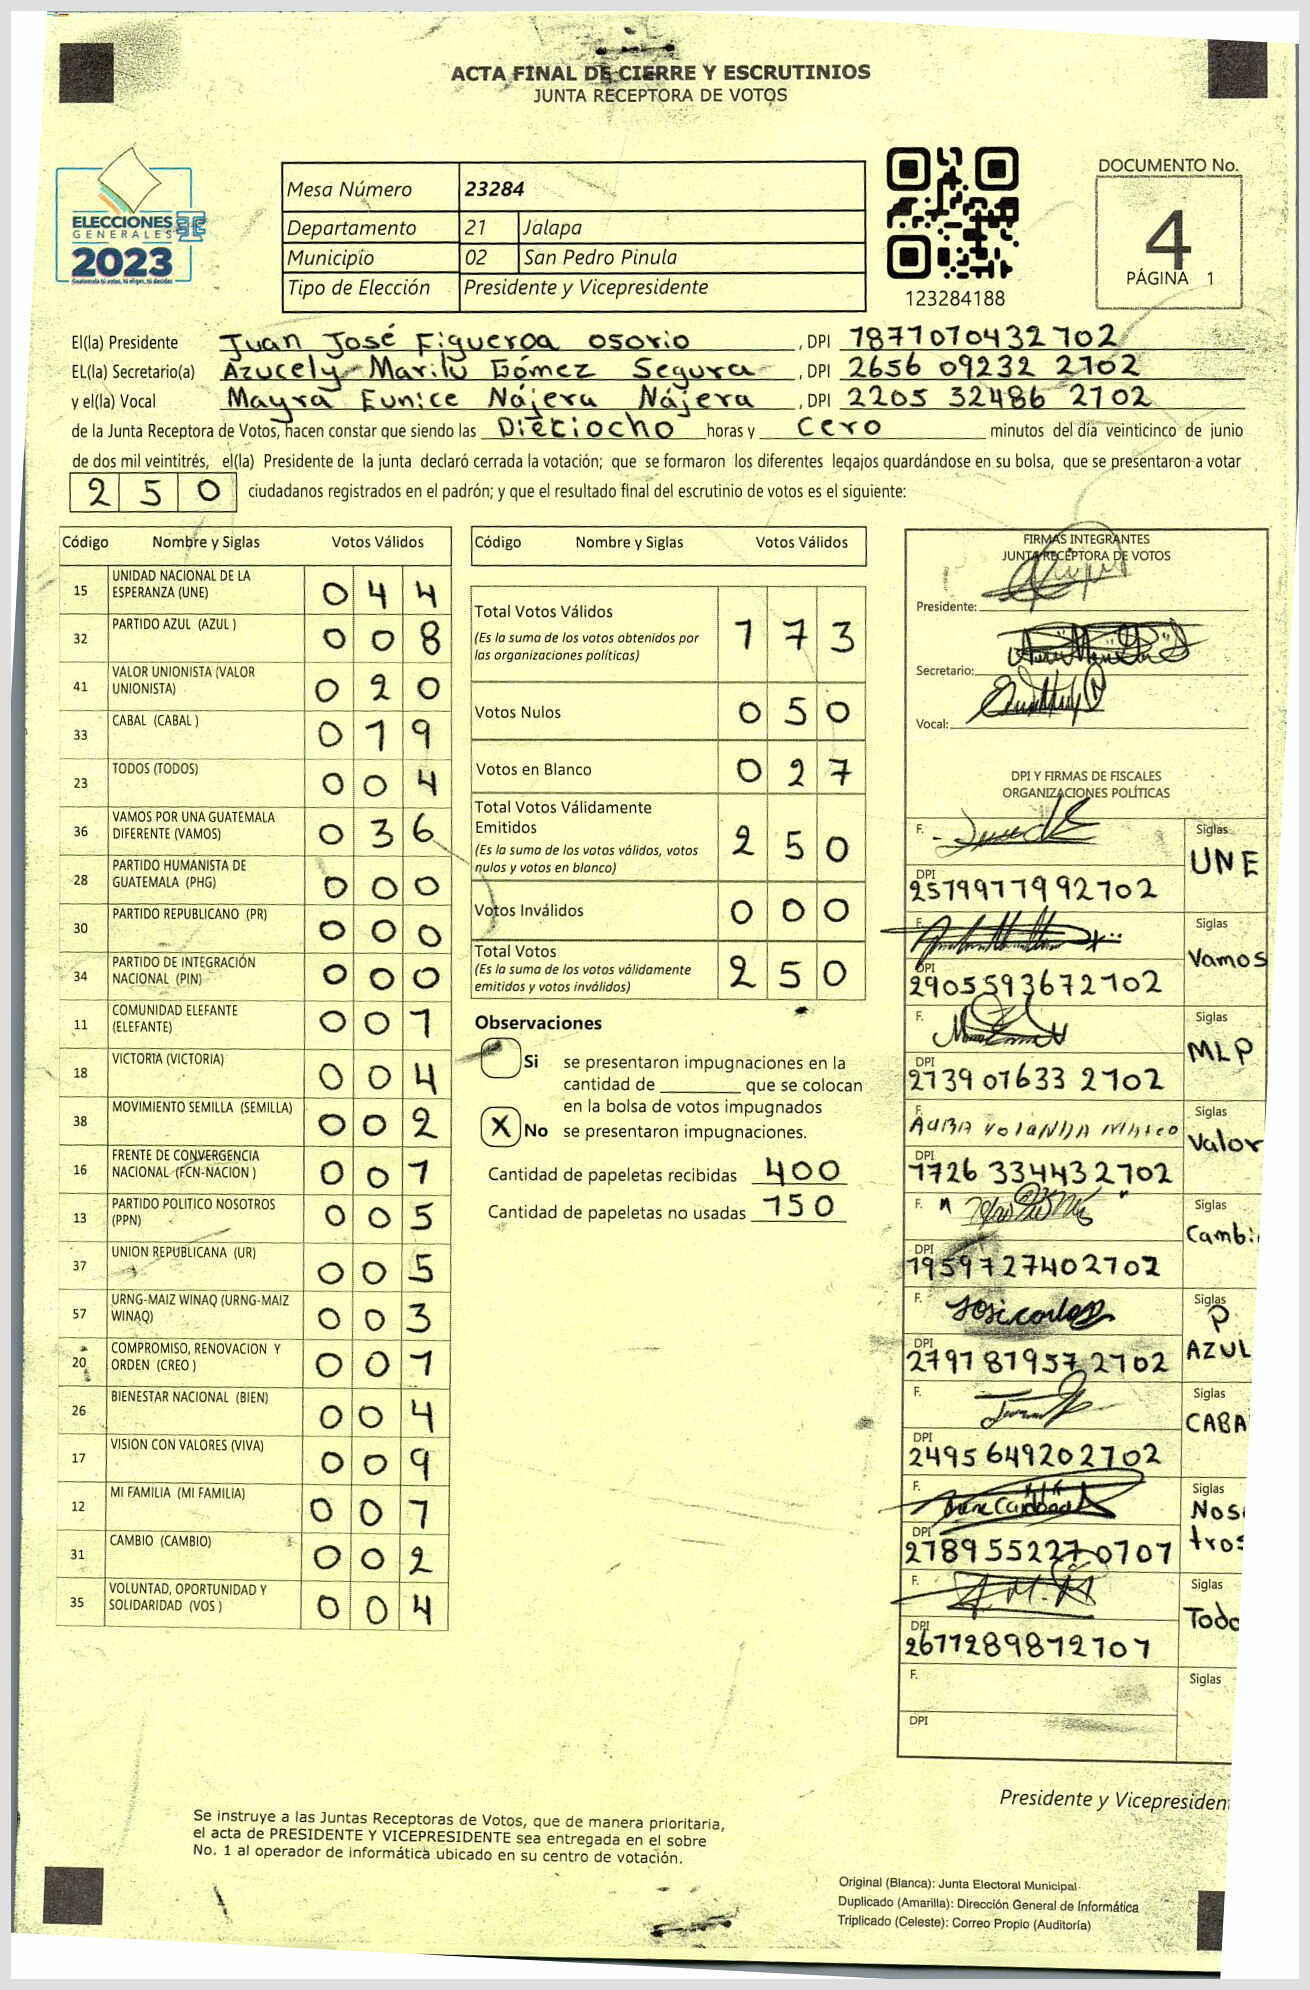 ACTA FINAL DE CIERRE Y ESCRUTINIOS
JUNTA RECEPTORA DE VOTOS
ELECCIONES
GENERALES
2023
Guatemala tú votas, tú eliges, tú decides
Mesa Número 23284
Departamento 21 Jalapa
Municipio 02 San Pedro Pinula
Tipo de Elección Presidente y Vicepresidente
123284188
DOCUMENTO No.
4
PÁGINA 1
El(la) Presidente Juan José Figueroa Osorio, DPI 1877070432702
EL(la) Secretario(a) Azucely Marilú Gómez Segura, DPI 2656 09232 2702
y el(la) Vocal Mayra Eunice Nájera Nájera, DPI 2205 32486 2702
de la Junta Receptora de Votos, hacen constar que siendo las Dieciocho horas y cero minutos del día veinticinco de junio
de dos mil veintitrés, el(la) Presidente de la junta declaró cerrada la votación; que se formaron los diferentes legajos guardándose en su bolsa, que se presentaron a votar
250 ciudadanos registrados en el padrón; y que el resultado final del escrutinio de votos es el siguiente:
Código Nombre y Siglas Votos Válidos
15 UNIDAD NACIONAL DE LA ESPERANZA (UNE) 044
32 PARTIDO AZUL (AZUL ) 008
41 VALOR UNIONISTA (VALOR UNIONISTA) 020
33 CABAL (CABAL ) 019
23 TODOS (TODOS) 004
36 VAMOS POR UNA GUATEMALA DIFERENTE (VAMOS) 036
28 PARTIDO HUMANISTA DE GUATEMALA (PHG) 000
30 PARTIDO REPUBLICANO (PR) 000
34 PARTIDO DE INTEGRACIÓN NACIONAL (PIN) 000
11 COMUNIDAD ELEFANTE (ELEFANTE) 001
18 VICTORIA (VICTORIA) 004
38 MOVIMIENTO SEMILLA (SEMILLA) 002
16 FRENTE DE CONVERGENCIA NACIONAL (FCN-NACION ) 001
13 PARTIDO POLITICO NOSOTROS (PPN) 005
37 UNION REPUBLICANA (UR) 005
57 URNG-MAIZ WINAQ (URNG-MAIZ WINAQ) 003
20 COMPROMISO, RENOVACION Y ORDEN (CREO ) 001
26 BIENESTAR NACIONAL (BIEN) 004
17 VISION CON VALORES (VIVA) 009
12 MI FAMILIA (MI FAMILIA) 001
31 CAMBIO (CAMBIO) 002
35 VOLUNTAD, OPORTUNIDAD Y SOLIDARIDAD (VOS ) 004
Código Nombre y Siglas Votos Válidos
Total Votos Válidos 173
(Es la suma de los votos obtenidos por
las organizaciones políticas)
Votos Nulos 050
Votos en Blanco 027
Total Votos Válidamente
Emitidos 250
(Es la suma de los votos válidos, votos
nulos y votos en blanco)
Votos Inválidos 000
Total Votos 250
(Es la suma de los votos válidamente
emitidos y votos inválidos)
Observaciones
Si se presentaron impugnaciones en la
cantidad de ________ que se colocan
en la bolsa de votos impugnados
X No se presentaron impugnaciones.
Cantidad de papeletas recibidas 400
Cantidad de papeletas no usadas 150
FIRMAS INTEGRANTES
JUNTA RECEPTORA DE VOTOS
Presidente:
Secretario:
Vocal:
DPI Y FIRMAS DE FISCALES
ORGANIZACIONES POLÍTICAS
F. Siglas UNE
DPI 2579977992702
F. Siglas Vamos
DPI 2905593672702
F. Siglas MLP
DPI 273907633 2702
F. Siglas Valor
DPI 1726 334432702
F. Siglas Cambi
DPI 1959727402702
F. Siglas P AZUL
DPI 2797879572702
F. Siglas CABA
DPI 2495649202702
F. Siglas Nosotros
DPI 2789552270707
F. Siglas Todo
DPI 2677289872707
F. Siglas
DPI
Presidente y Vicepresiden
Se instruye a las Juntas Receptoras de Votos, que de manera prioritaria,
el acta de PRESIDENTE Y VICEPRESIDENTE sea entregada en el sobre
No. 1 al operador de informática ubicado en su centro de votación.
Original (Blanca): Junta Electoral Municipal
Duplicado (Amarilla): Dirección General de Informática
Triplicado (Celeste): Correo Propio (Auditoría)